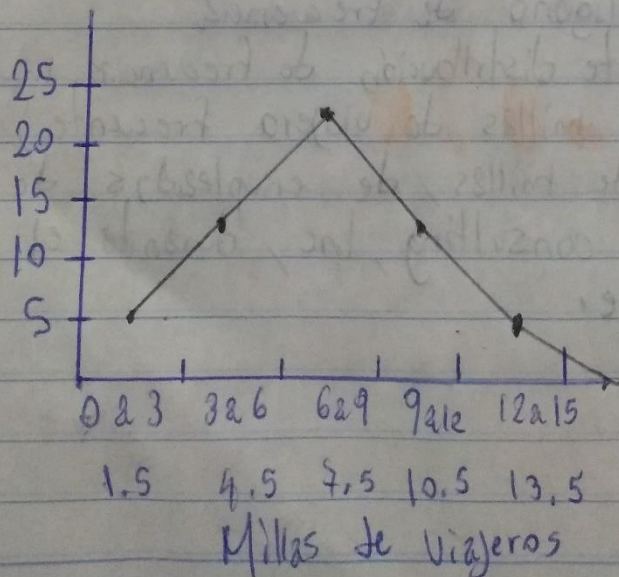 25
20
15
10
5
0 a 3 3 a 6 6 a 9 9 a 12 12 a 15
1.5 4.5 7.5 10.5 13.5
Millas de Viajeros